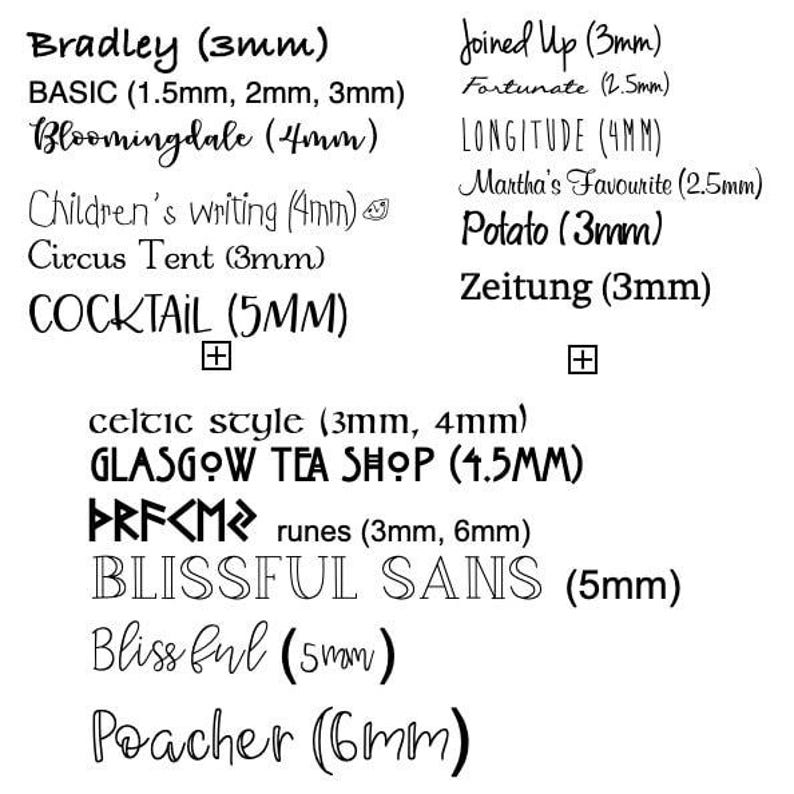 Bradley (3mm)
BASIC (1.5mm, 2mm, 3mm)
Bloomingdale (4mm)
Children's writing (4mm)
Circus Tent (3mm)
COCKTAiL (5MM)
Joined Up (3mm)
Fortunate (2.5mm)
LONGITUDE (4MM)
Martha's Favourite (2.5mm)
Potato (3mm)
Zeitung (3mm)
celtic style (3mm, 4mm)
GLASGOW TEA SHOP (4.5MM)
ᚦᚱᚨᚲᛖᛃ runes (3mm, 6mm)
BLISSFUL SANS (5mm)
Blissful (5mm)
Poacher (6mm)